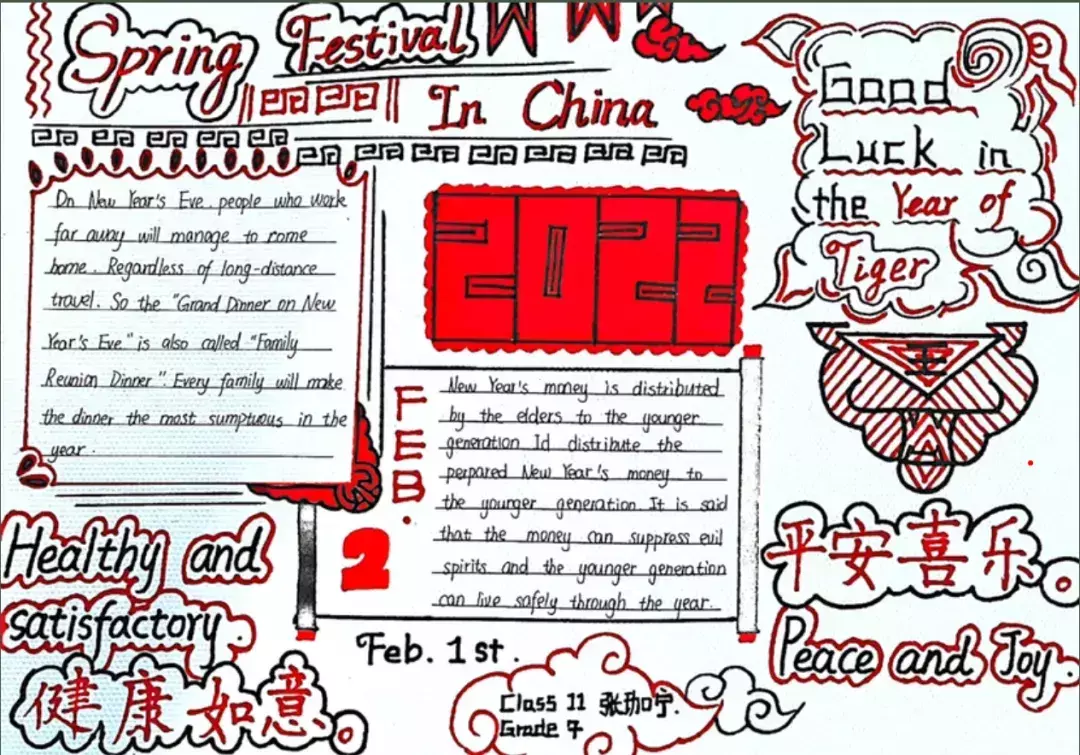 Spring Festival
In China
On New Year's Eve. people who work
far away will manage to come
home. Regardless of long-distance
travel. So the "Grand Dinner on New
Year's Eve" is also called "Family
Reunion Dinner". Every family will make
the dinner the most sumptuous in the
year.
2022
FEB.
2
New Year's money is distributed
by the elders to the younger
generation Id distribute the
perpared New Year's money to
the younger generation. It is said
that the money can suppress evil
spirits and the younger generation
can live safely through the year.
Feb. 1st.
Class 11 张珈宁.
Grade 7
Good
Luck in
the Year of
Tiger
王
平安喜乐
Peace and Joy.
Healthy and
satisfactory.
健康如意